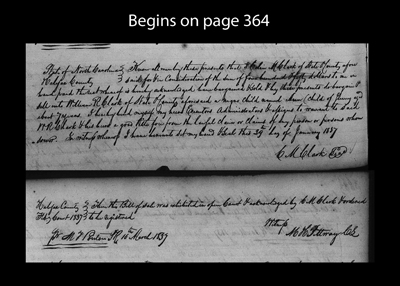 Begins on page 364
State of North Carolina } Know all men by these presents that I Colin M. Clark of State & County afore
Halifax County } said for & in Consideration of the sum of five hundred & fifty dollars to me in
hand paid the receipt of is hereby acknowledged have bargained & Sold & by these presents do bargain &
Sell unto William R. Clark of State & County aforesaid a Negro child named (child of Jenny) aged
about years. I hereby bind myself my heirs Executors Administrators & assigns to warrant the said
W. R. Clark & his heirs a good title from the lawful claim or claims of any person or persons whom
soever. In witness whereof I have hereunto set my hand & Seal this day of January 1837
C. M. Clark Seal
Halifax County } Then this Bill of Sale was exhibited in open Court & acknowledged by C. M. Clark & ordered
Feby Court 1837 } to be registered
Witness
March 1837